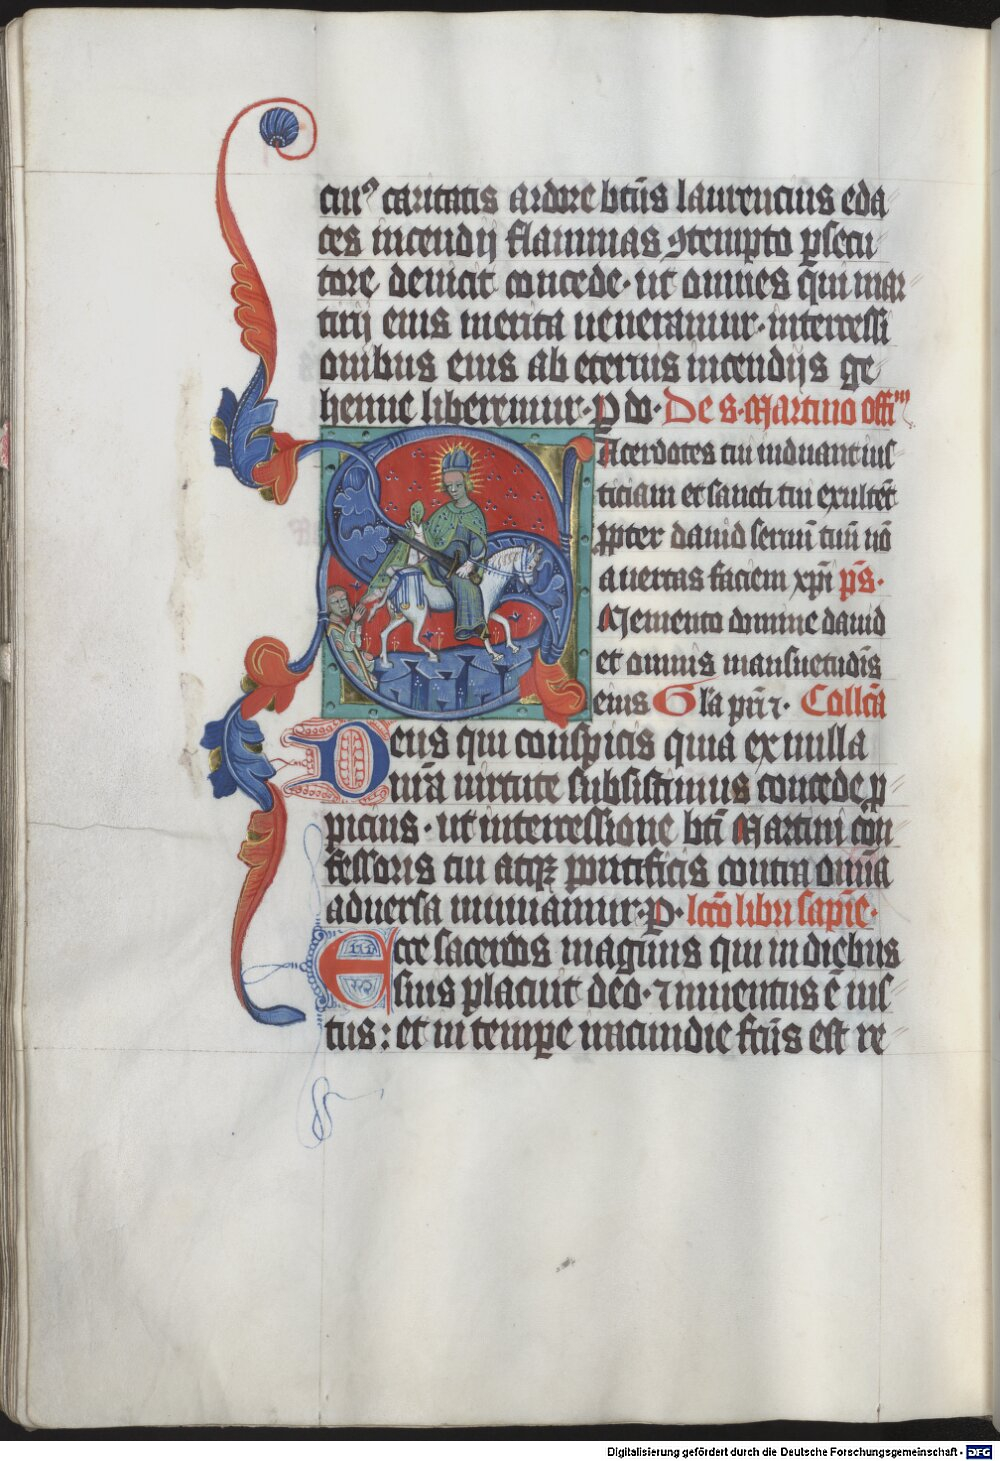 cui⁹ caritatis ardore bt̄us laurencius eda
ces incendij flammas ꝯtempto ꝑsecu
tore deuicit concede· ut omnes qui mar
tirij eius merita ueneramur· intercessi
onibus eius ab eternis incendijs ge
henne liberemur· P do· De s· Martino offi^m
Sacerdotes tui induant ius
ticiam et sancti tui exultēt
ꝓpter dauid seruū tuū nō
auertas faciem xp̄i p̄s·
Memento domine dauid
et omnis mansuetudīs
eius Gl̄a pr̄i ⁊· Collc̄a
Deus qui conspicis quia ex nulla
nr̄a uirtute subsistimus concede ꝓ
picius· ut intercessione bt̄i Martini con
fessoris tui atqꝫ pontificis contra om̄ia
aduersa muniamur· P· lcc̄o libri sapīe·
Ecce sacerdos magnus qui in diebus
suis placuit deo· ⁊ inuentus ē ius
tus: et in tempe iracundie fc̄us est re
Digitalisierung gefördert durch die Deutsche Forschungsgemeinschaft - DFG